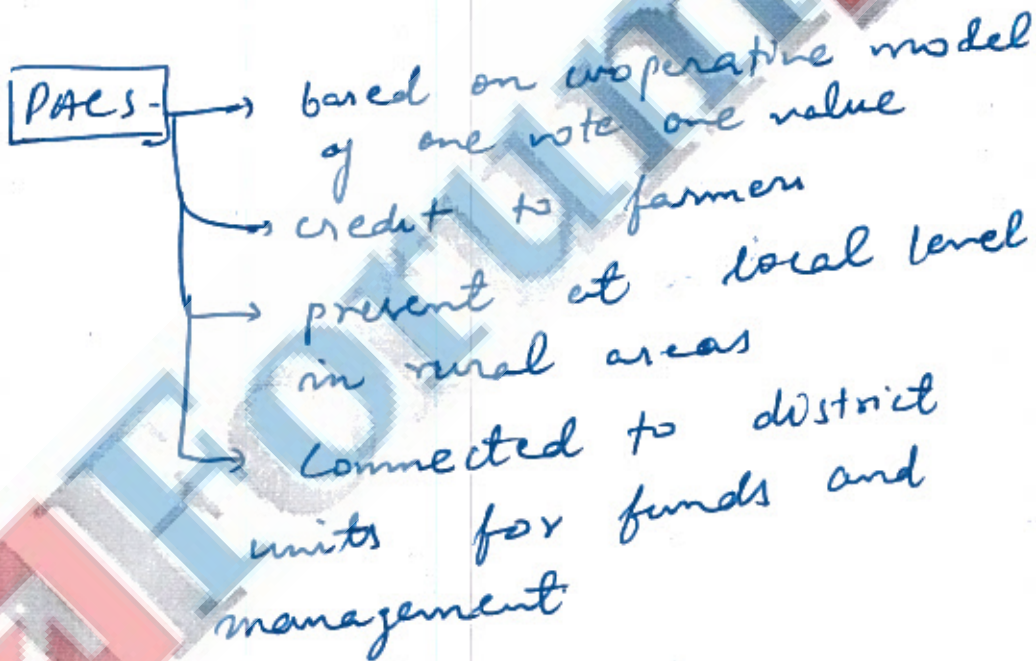 PACS -
based on cooperative model
of one vote one value
credit to farmers
present at local level
in rural areas
Connected to district
units for funds and
management
Forum